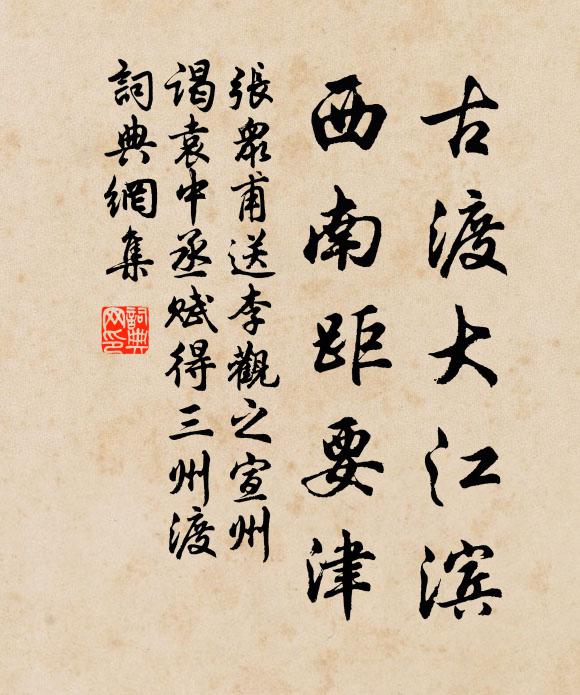 古渡大江滨
西南距要津
張眾甫送李觀之宣州
謁袁中丞赋得三州渡
詞典網集
詞典
网印